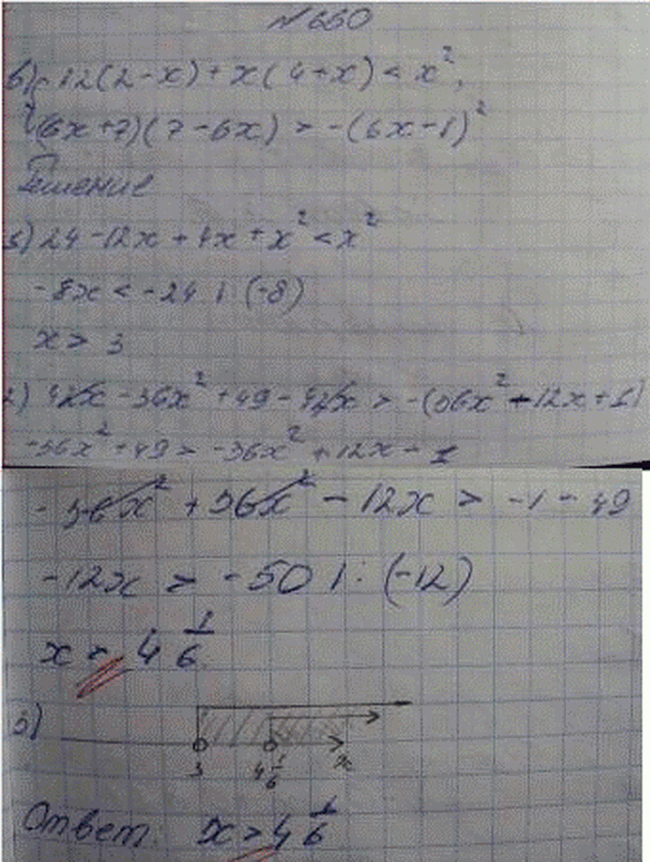 № 660
в) 12(2-x)+x(4+x)<x²,
(6x+7)(7-6x)>-(6x-1)²
Решение
1) 24-12x+4x+x²<x²
-8x<-24 | :(-8)
x>3
2) 42x-36x²+49-42x>-(36x²-12x+1)
-36x²+49>-36x²+12x-1
-36x²+36x²-12x>-1-49
-12x>-50 | :(-12)
x> 4 1/6
3)
3 4 1/6 x
Ответ: x>4 1/6